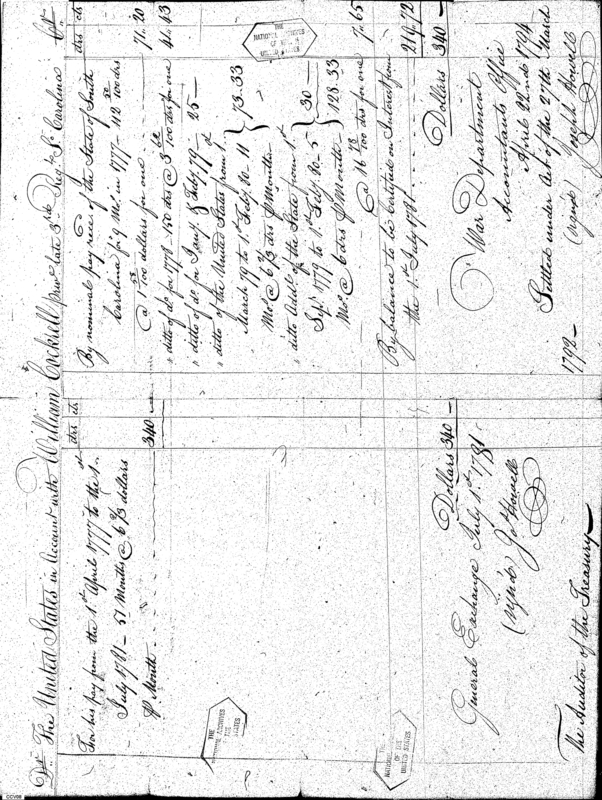 Dr. The United States in Account with William Cockrell priv. late 3rd Regt. So. Carolina Cr.
drs cts
For his pay from the 1st April 1777 to the 1st
July 1781 - 51 Months @ 6 2/3 dollars
P Month 340
Dollars 340 -
General Exchange July 1st 1781
(sign'd) Jos. Howell
The Auditor of the Treasury
drs cts
By nominal pay recd. of the State of South
Carolina for 9 Mos. in 1777 - 112 50/100 drs
@ 1 58/100 dollars for one 71. 20
" ditto of do. for 1778 150 drs @ 3 62/100 drs for one 41. 43
" ditto of do. for Jany. & Feby. 79 - 25 -
" ditto of the United States from 1st
March 79 to 1st Feby. 80 - 11
Mos. @ 6 2/3 drs P Month } 73.33
" ditto Addl. of the States from 1st
Sept. 1779 to 1st Feby. 80 - 5
Mos. @ 6 drs P Month } 30 -
128.33
@ 16 78/100 drs for one 7. 65
By balance to be certified on Interest from
the 1st July 1781 219.72
Dollars 340 -
War Department
Accountants Office
April 22nd 1794
Settled under Act of the 27th March
1792 -
(signd) Joseph Howell
THE
NATIONAL ARCHIVES
OF THE
UNITED STATES
THE
NATIONAL ARCHIVES
OF THE
UNITED STATES
THE
NATIONAL ARCHIVES
OF THE
UNITED STATES